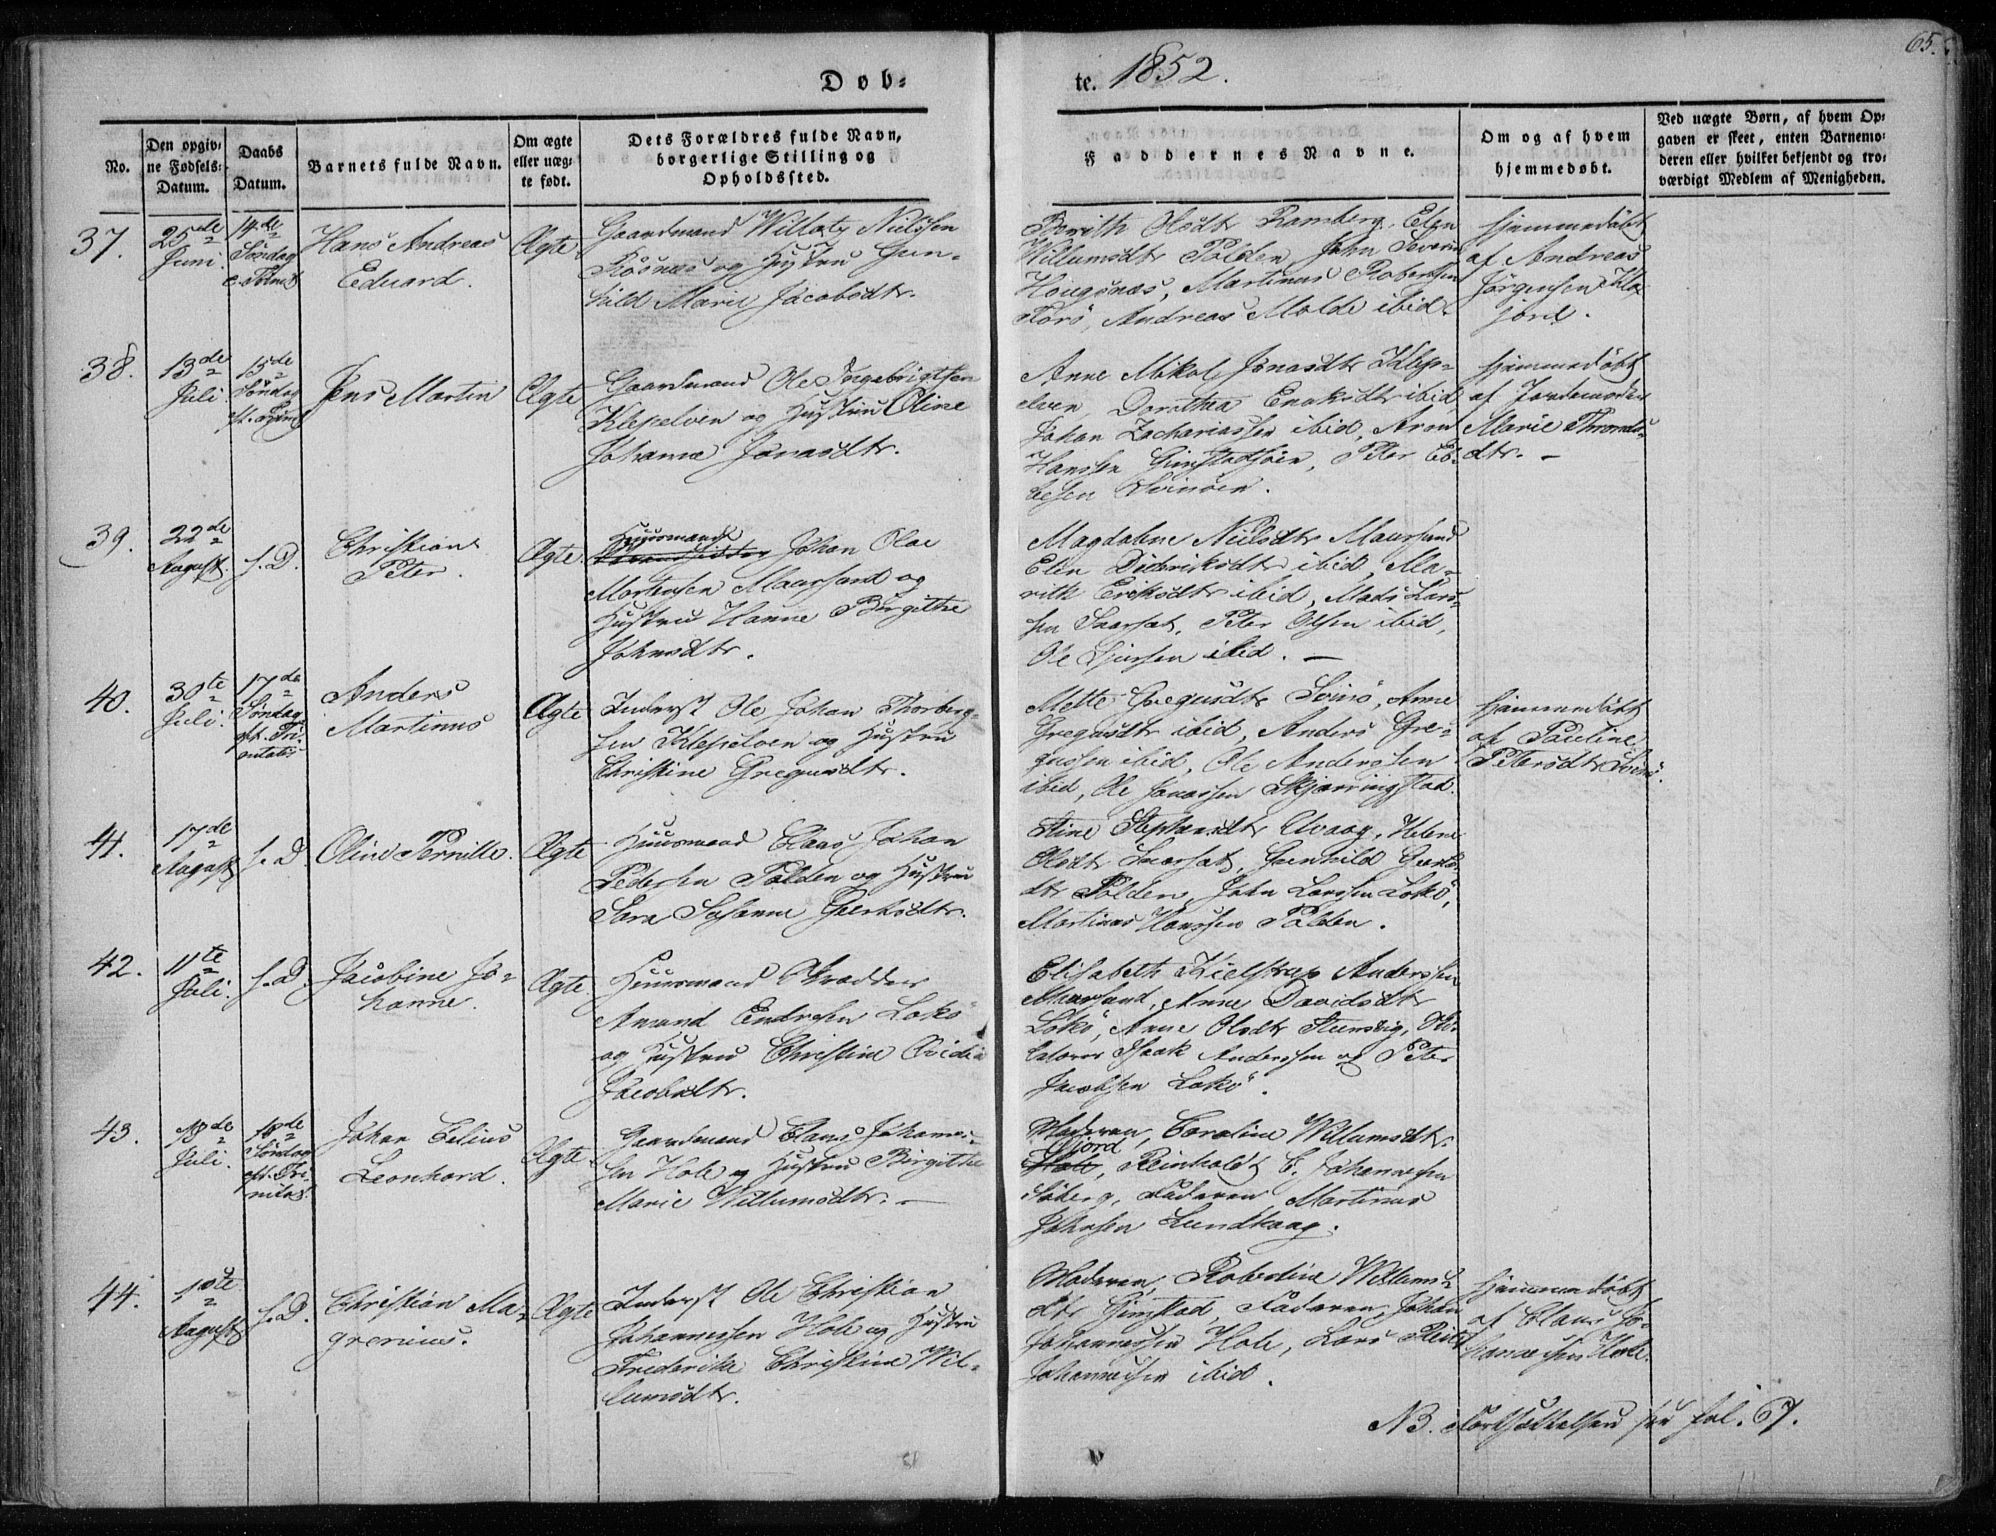 65.
Døb-
te. 1852.
No.
Den opgiv-
ne Fødsels-
Datum.
Daabs
Datum.
Barnets fulde Navn.
Om ægte
eller uæg-
te født.
Dets Forældres fulde Navn,
borgerlige Stilling og
Opholdssted.
Faddernes Navne.
Om og af hvem
hjemmedøbt.
Ved uægte Børn, af hvem Op-
gaven er skeet, enten Barnemo-
deren eller hvilket bekjendt og tro-
værdigt Medlem af Menigheden.
37.
25de
Juni.
14de
Søndag
Hans Andreas
Eduard.
Ægte
Gaardmand Willats Nielsen
Røsnæs og Hustru Gun-
hild Marie Jacobsdtr.
Berith Olsdtr Ramberg, Elen
Willumsdtr Polden, John Severin
Hougsnæs, Martinus Robertsen
Andreas Molde ibid.
hjemmedöbt
af Andreas
Jörgensen Kla
jord.
38.
13de
Juli
15de
Søndag
Jens Martin
Ægte
Gaardmand Ole Ingebrigtsen
Klepelven og Hustru Oline
Johanna Jonasdtr.
Anne Mikal Jonasdtr Klep-
elven, Dorothea Enoksdtr ibid,
Johan Zachariassen ibid, Aron
Hanssen Gimstadsøen, Peter Es-
besen Svinøen.
hjemmedöbt
af Jordemoder
Marie Thronds-
dtr. -
39.
22de
August.
s. D.
Christian
Peter.
Ægte.
Huusmand
Johan Olae
Mortensen Maursund og
Hustru Hanne Birgithe
Johnsdtr.
Magdalene Nielsdtr Maursund
Elen Dideriksdtr ibid, Ma-
rith Eriksdtr ibid, Mads Lars-
sen Snarset, Peter Olsen ibid,
Ole Sjursen ibid. -
40.
30te
Juli.
17de
Søndag
eft. Tri-
nitatis
Anders
Martinus
Ægte
Inderst Ole Johan Thorberg-
sen Klepelven og Hustru
Christine Gregusdtr.
Mette Gregusdtr Svinö, Anne
Gregusdtr ibid, Anders Gre-
gussen ibid, Ole Anderssen
ibid, Ole Jonassen Skjærringstad.
hjemmedöbt
af Pauline
Petersdtr Svinö.
41.
17de
August
s. D
Oline Pernille.
Ægte
Huusmand Claus Johan
Pedersen Polden og Hustru
Sara Susanne Gjertsdtr.
Stine Stephansdtr Elvaag, Helene
Olsdtr Snarset, Gunhild Gjerts-
dtr Polden, John Larssen Lokö,
Martinus Hanssen Polden.
42.
11te
Juli.
s. D.
Jacobine Jo-
hanne.
Ægte
Huusmand Skrædder
Amund Endresen Lokö
og Hustru Christine Ovidia
Jacobsdtr.
Elisabeth Kielstrup Anderssen
Maursund, Anne Davidsdtr
Lokö, Anne Olsdtr Steensvig,
Isaak Anderssen og Peter
Jacobsen Lokö.
43.
18de
Juli.
18de
Søndag
eft. Tri
nitat.
Johan Celius
Leonhard.
Ægte
Gaardmand Claus Johannes-
sen Hole og Hustru Birgithe
Marie Willumsdtr. -
Moderen, Caroline Willumsdtr.
Fjord
Hole, Reinholdt C. Johannessen
Søberg, Faderen Martinus
Johnsen Lundkaag.
44.
10te
August
s. D.
Christian Ma-
grenius.
Ægte
Inderst Ole Christian
Johannessen Hole og Hustru
Frederikke Christine Wil-
lumsdtr.
Moderen, Robertine Willums-
dtr Gimstad, Faderen, Johan
Johannessen Hole, Lars
Johannessen ibid.
hjemmedöbt
af Claus Jo-
hannessen Hole.
NB. Fortsættelsen see fol. 67.